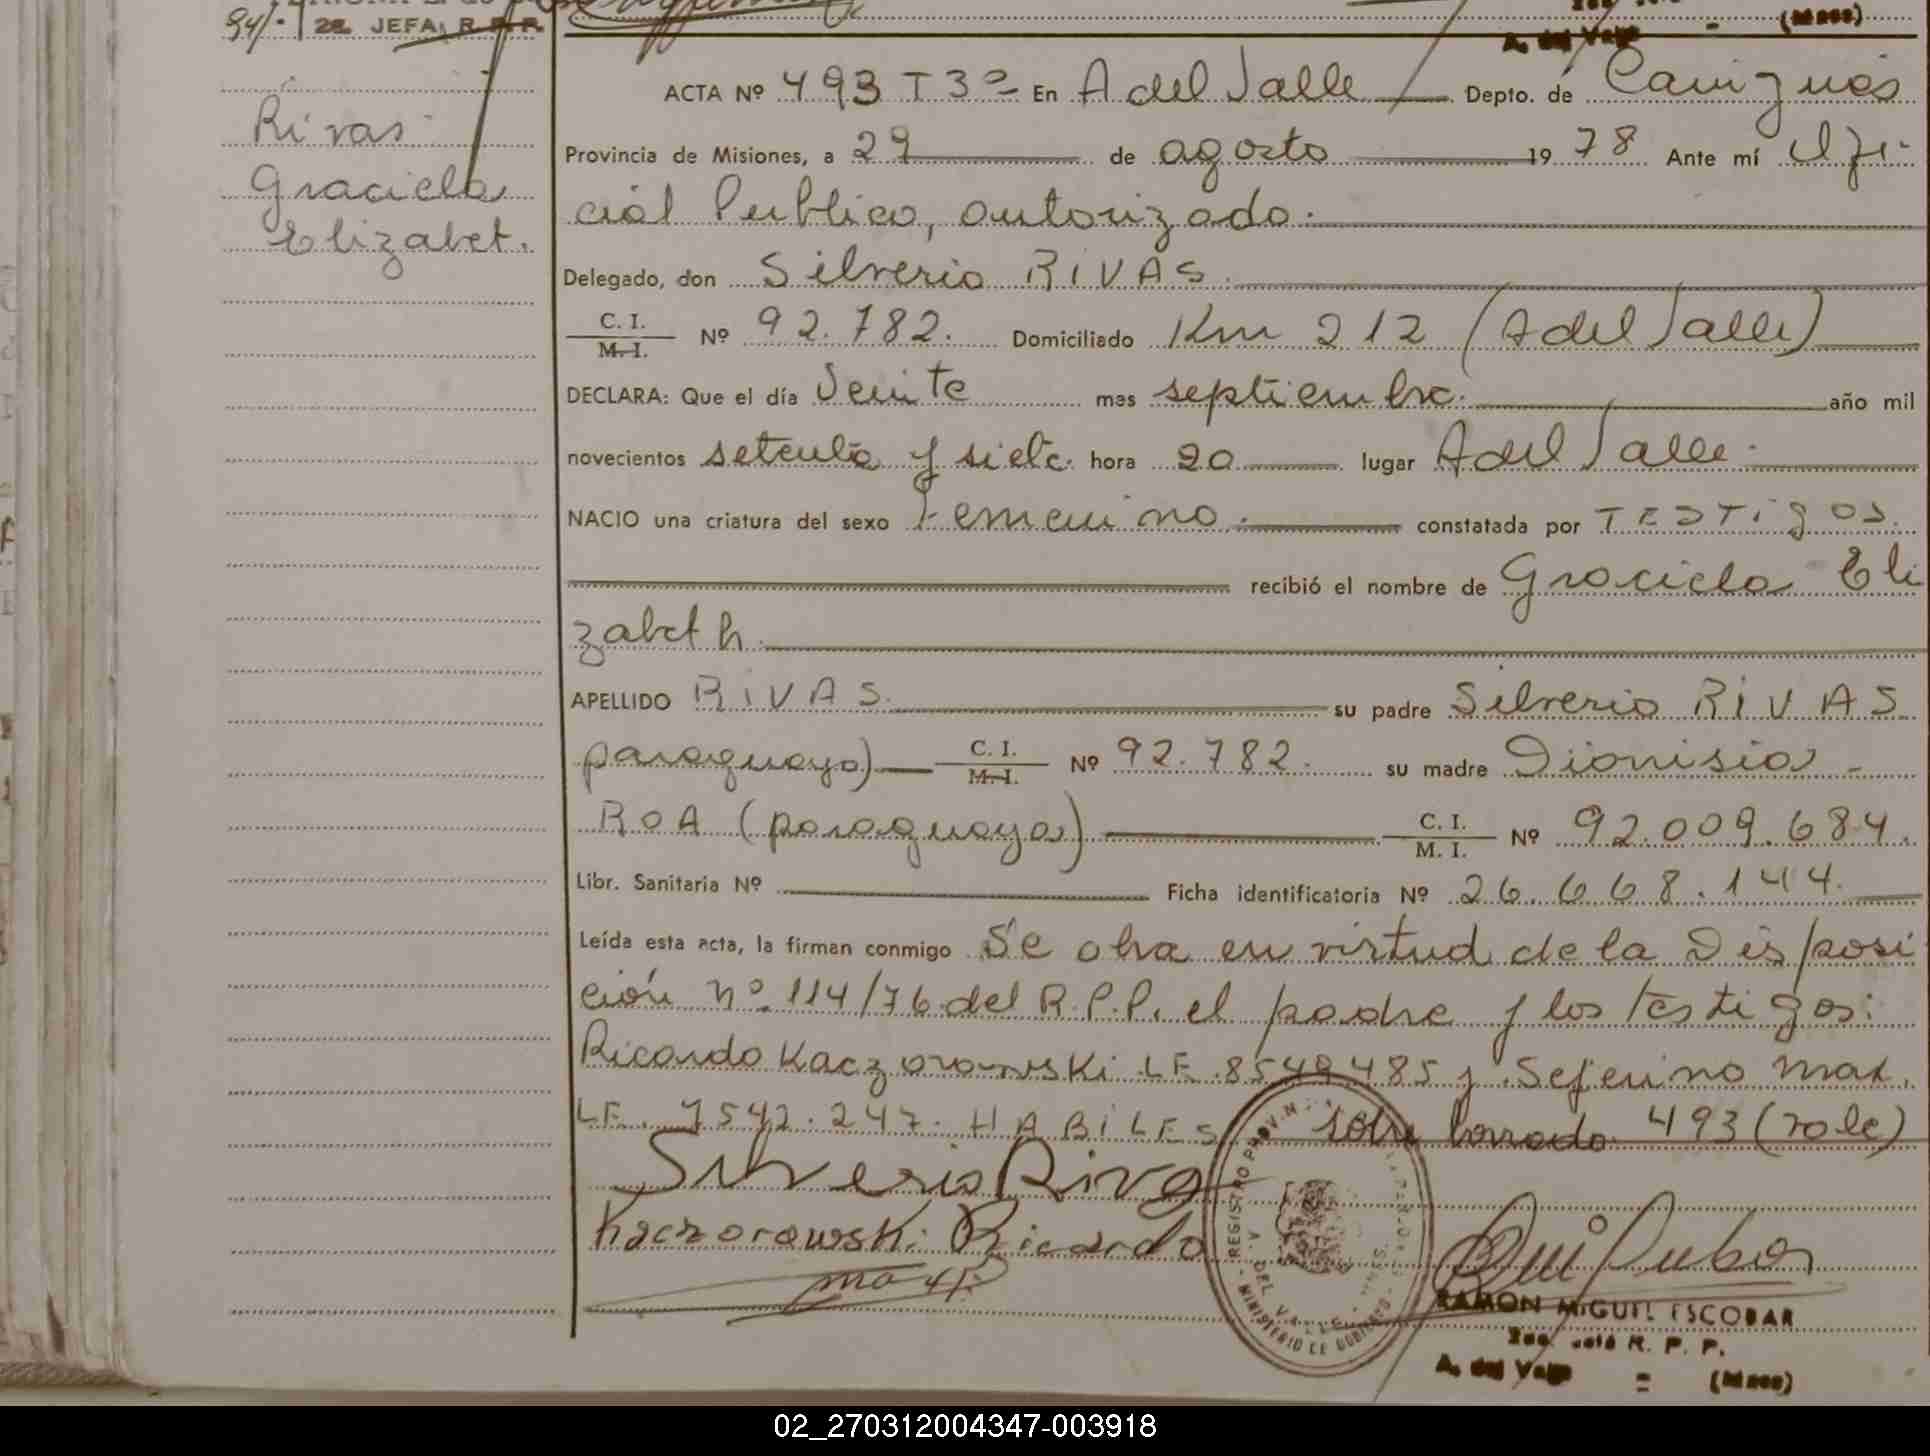 94/-
2ª JEFA, R. P. P.
(Mnes)
A. del Valle
Rivas
Graciela
Elizabet.
ACTA Nº 493 T 3º En A del Valle Depto. de Cainguás
Provincia de Misiones, a 29 de agosto 19 78 Ante mí Ofi-
cial Publico, autorizado.
Delegado, don Silverio RIVAS.
C. I. / M. I. Nº 92.782. Domiciliado Km 212 (A del Valle)
DECLARA: Que el día Veinte mes septiembre. año mil
novecientos setenta y siete. hora 20 lugar A del Valle.
NACIO una criatura del sexo Femenino. constatada por TESTigos.
recibió el nombre de Graciela Eli
zabeth.
APELLIDO RIVAS. su padre Silverio RIVAS
paraguayo) C. I. / M. I. Nº 92.782. su madre Dionisia -
ROA (paraguaya) C. I. / M. I. Nº 92.009.684.
Libr. Sanitaria Nº Ficha identificatoria Nº 26.668.144.
Leída esta acta, la firman conmigo Se obra en virtud de la Disposi
ción nº 114/76 del R.P.P. el padre y los testigos:
Ricardo Kaczorowski LE. 8549485 y Seferino Max.
LE. 7542.247. HABILES. sobre borrado 493 (vale)
Silverio Riva
Kaczorowski Ricardo
REGISTRO PROV.
DEL VALLE
MINISTERIO DE GOBIERNO
RAMON MIGUEL ESCOBAR
R. P. P.
A. del Valle = (Mnes)
02_270312004347-003918